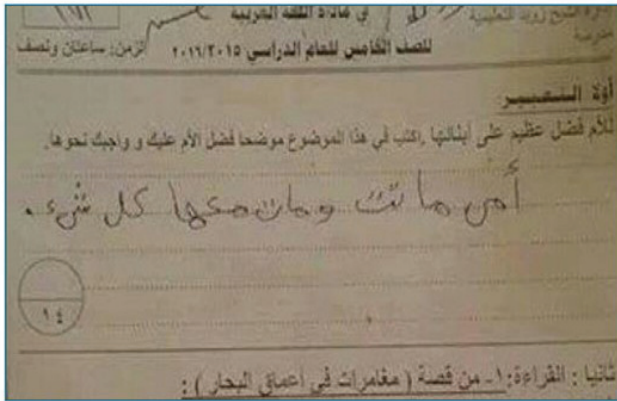 إدارة الشيخ زويد التعليمية
في مادة اللغة العربية
مدرسة
للصف الخامس للعام الدراسي ٢٠١٦/٢٠١٥
الزمن: ساعتان ونصف
أولا التعبير
للأم فضل عظيم على أبنائها .اكتب في هذا الموضوع موضحا فضل الأم عليك و واجبك نحوها.
أمي ماتت ومات معها كل شيء .
١٤
ثانيا : القراءة: ١- من قصة ( مغامرات في أعماق البحار ) :